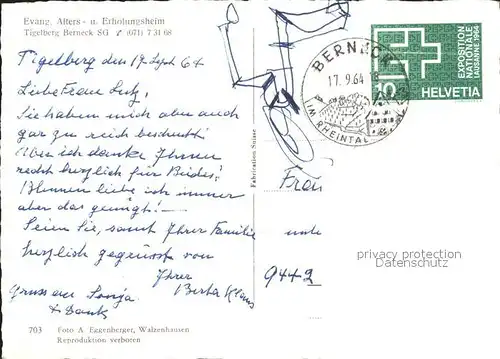 Evang. Alters - u. Erholungsheim
Tigelberg Berneck SG (071) 7 31 68
Tigelberg den 17. Sept 64
Liebe Frau Lutz,
Sie haben mich aber auch
gar zu reich beschenkt!
Aber ich danke Ihnen
recht herzlich für Beides!
Blumen liebe ich immer
aber das genügt! —
Seien Sie, samt Ihrer Familie
herzlich gegrüsst von
Ihrer
Berta Klaus
Gruss an Sonja
& Dank
703 Foto A. Eggenberger, Walzenhausen
Reproduktion verboten
Fabrication Suisse
BERNECK
17. 9. 64
IM RHEINTAL
EXPOSITION
NATIONALE
LAUSANNE 1964
10
HELVETIA
Frau
9442
privacy protection
Datenschutz